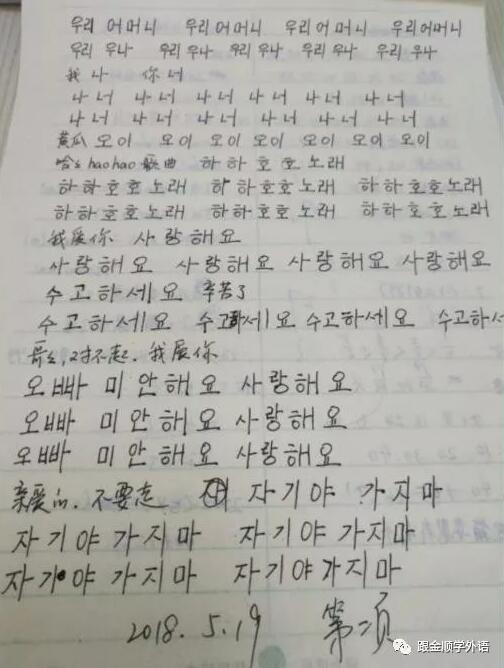 우리 어머니 우리 어머니 우리 어머니 우리어머니
우리 우나 우리 우나 우리 우나 우리 우나 우리 우나
我 나 你 너
나 너 나 너 나 너 나 너 나 너 나 너
나 너 나 너 나 너 나 너 나 너 나 너
黄瓜 오이 오이 오이 오이 오이 오이 오이
哈哈 hao hao 歌曲 하 하 호 호 노래
하 하 호 호 노래 하 하 호 호 노래 하 하 호호 노래
하 하 호 호 노래 하 하 호 호 노래 하 하 호호 노래
我爱你 사 랑 해 요
사랑해요 사랑해요 사랑해요 사랑해요
수고하세요 辛苦了
수고하세요 수고하세요 수고하세요 수고하
哥哥,对不起,我爱你
오빠 미안해요 사랑해요
오빠 미안해요 사랑해요
오빠 미안해요 사랑해요
亲爱的,不要走, 자기야 가지마
자기야 가지마 자기야 가지마
자기야 가지마 자기야가지마
2018.5.19 第二项
跟金顺学外语